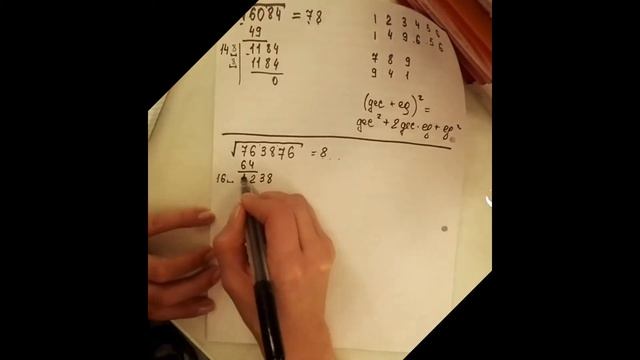 √6084 = 78
49
148 | -1184
8 | 1184
0
1 2 3 4 5 6
1 4 9 6 5 6
7 8 9
9 4 1
(дес + ед)² =
дес² + 2дес·ед + ед²
√763876 = 8..
64
16_ 1238